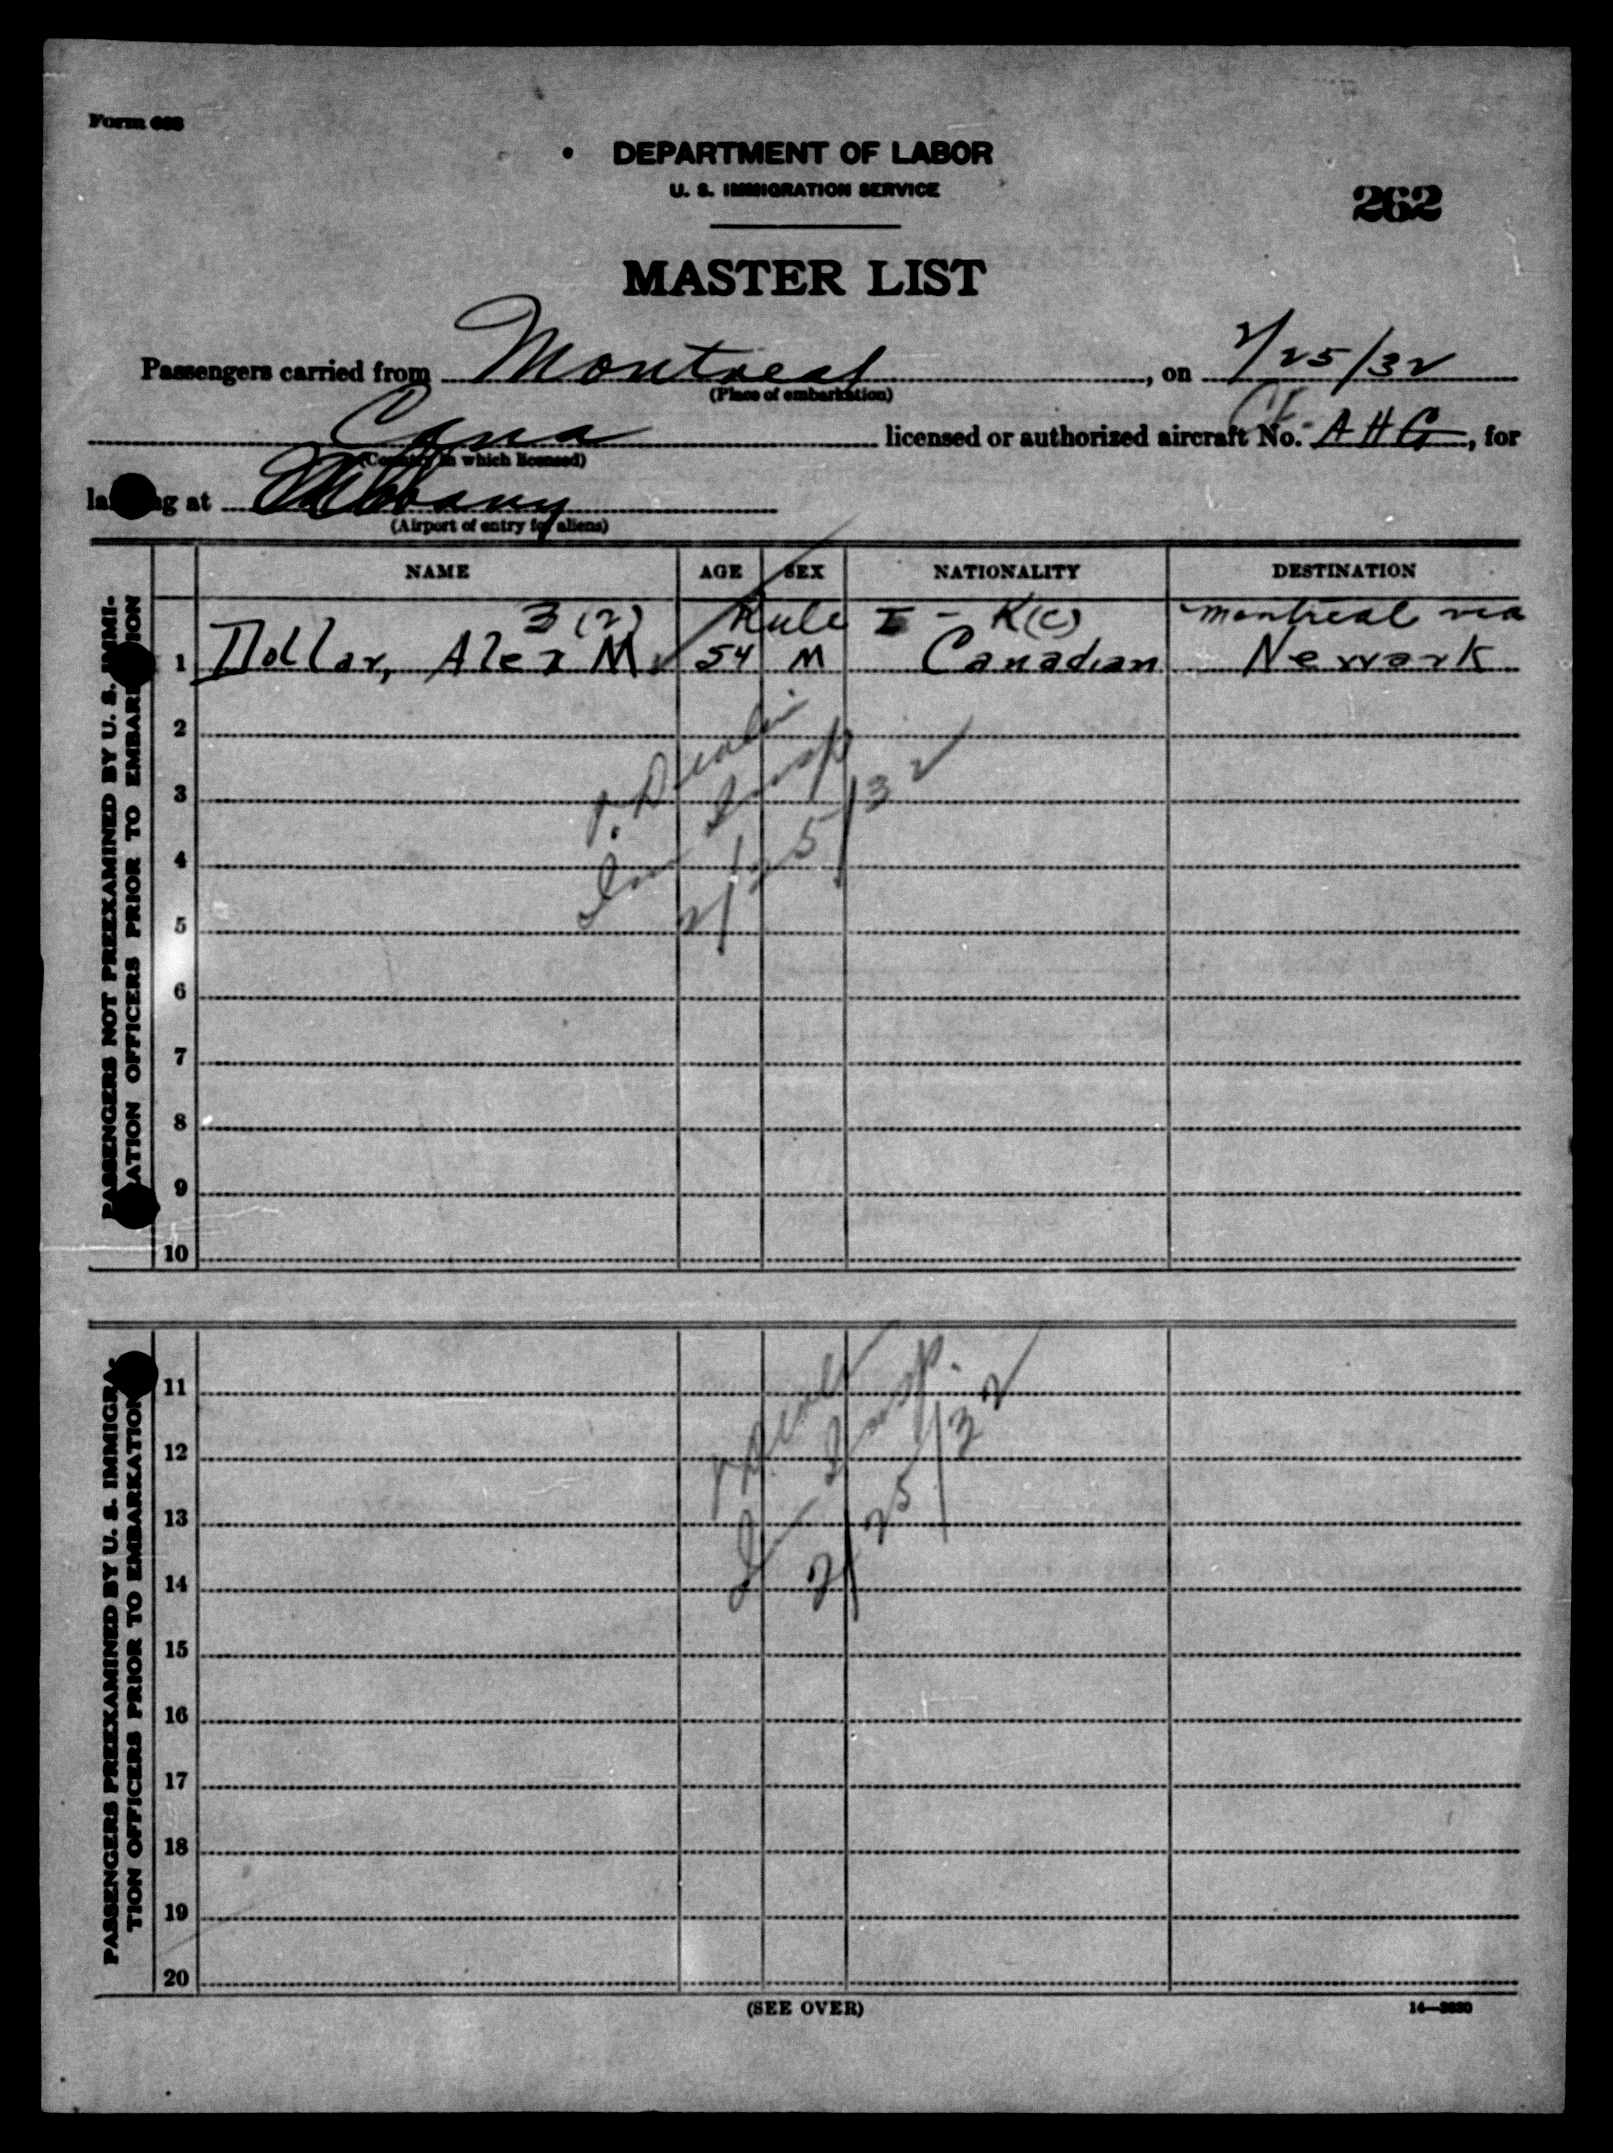 Form 668
DEPARTMENT OF LABOR
U. S. IMMIGRATION SERVICE
262
MASTER LIST
Passengers carried from Montreal, on 2/25/32
(Place of embarkation)
Cana licensed or authorized aircraft No. CF- AHG, for
(Country in which licensed)
landing at Albany
(Airport of entry for aliens)
NAME AGE SEX NATIONALITY DESTINATION
3(2) Rule I - K(c) montreal via
1 Dollar, Alex M. 54 M Canadian Newark
2
3
4
5
6
7
8
9
10
Imm Insp
2/25/32
PASSENGERS NOT PREEXAMINED BY U. S. IMMI-
GRATION OFFICERS PRIOR TO EMBARKATION
11
12
13
14
15
16
17
18
19
20
Imm Insp.
2/25/32
PASSENGERS PREEXAMINED BY U. S. IMMIGRA-
TION OFFICERS PRIOR TO EMBARKATION
(SEE OVER)